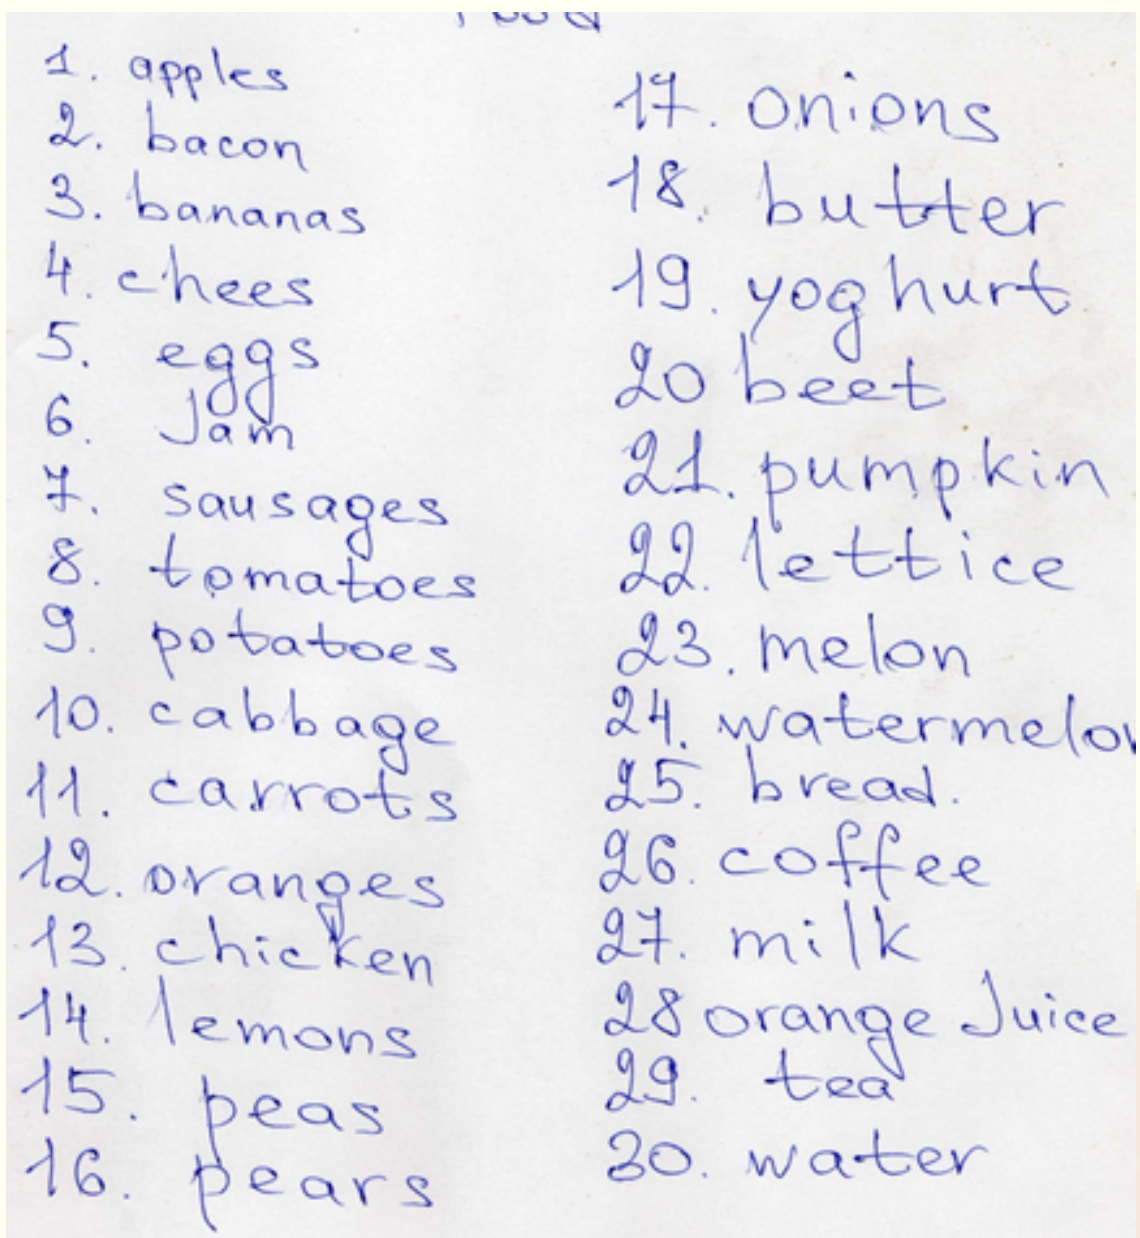 Food
1. apples
2. bacon
3. bananas
4. chees
5. eggs
6. Jam
7. sausages
8. tomatoes
9. potatoes
10. cabbage
11. carrots
12. oranges
13. chicken
14. lemons
15. peas
16. pears
17. onions
18. butter
19. yoghurt
20 beet
21. pumpkin
22. lettice
23. melon
24. watermelon
25. bread.
26. coffee
27. milk
28 orange Juice
29. tea
30. water